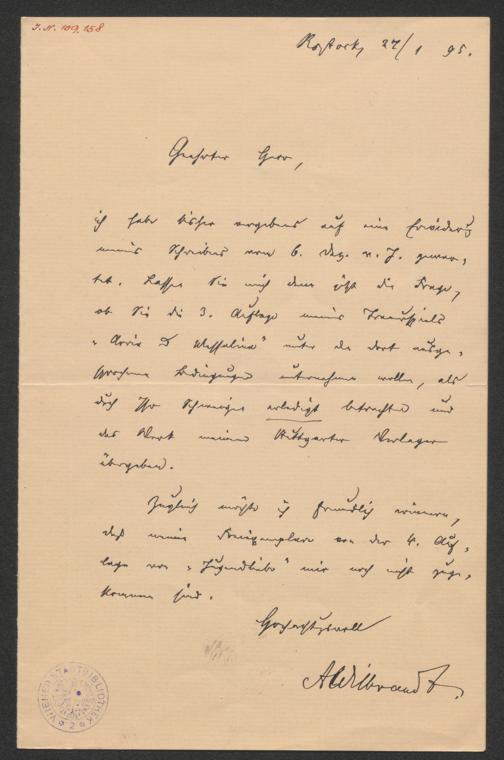 J. N. 109.158
Rostock, 27/1 95.
Geehrter Herr,
ich habe bisher vergebens auf eine Erwiderung
meines Schreibens vom 6. Dez. v. J. gewar-
tet. Lassen Sie mich denn jetzt die Frage,
ob Sie die 3. Auflage meines Trauerspiels
„Arria & Messalina" unter den dort ausge-
sprochenen Bedingungen unternehmen wollen, als
durch Ihr Schweigen erledigt betrachten und
das Werk meinem Stuttgarter Verleger
übergeben.
Zugleich möchte ich freundlich erinnern,
daß meine Freiexemplare von der 4. Auf-
lage von „Jugendliebe" mir noch nicht zuge-
kommen sind.
Hochachtungsvoll
AWilbrandt.
WIENER STADTBIBLIOTHEK